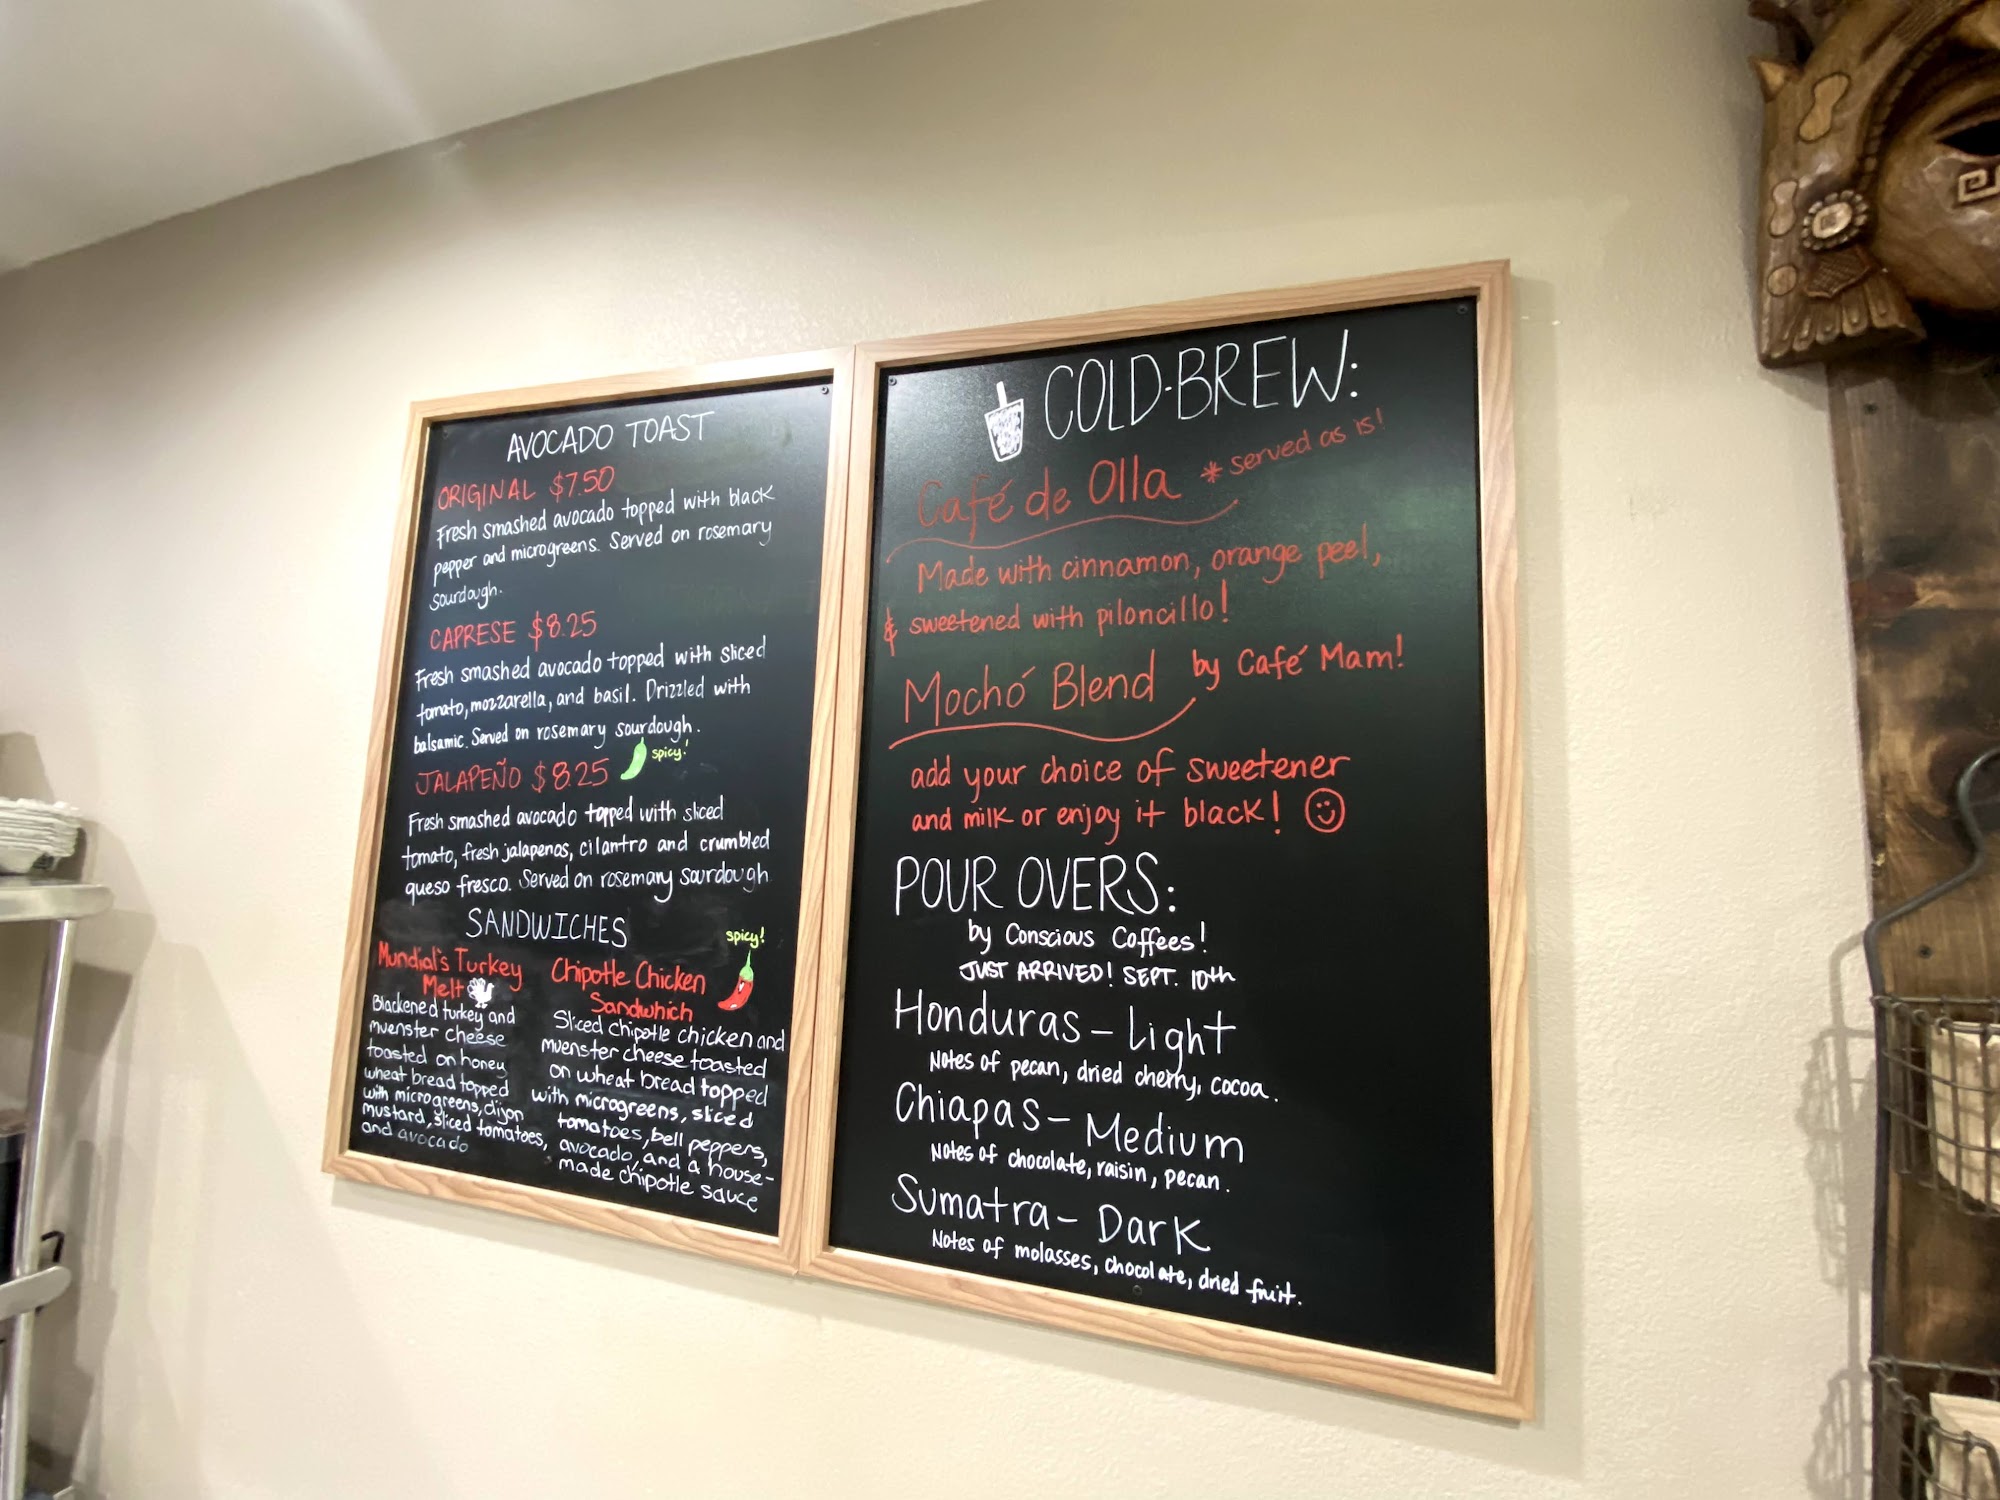 AVOCADO TOAST
ORIGINAL $7.50
Fresh smashed avocado topped with black
pepper and microgreens. Served on rosemary
sourdough.
CAPRESE $8.25
Fresh smashed avocado topped with sliced
tomato, mozzarella, and basil. Drizzled with
balsamic. Served on rosemary sourdough.
JALAPEÑO $8.25 spicy!
Fresh smashed avocado topped with sliced
tomato, fresh jalapenos, cilantro and crumbled
queso fresco. Served on rosemary sourdough
SANDWICHES
Mundial's Turkey
Melt
Blackened turkey and
muenster cheese
toasted on honey
wheat bread topped
with microgreens, dijon
mustard, sliced tomatoes,
and avocado
spicy!
Chipotle Chicken
Sandwhich
Sliced chipotle chicken and
muenster cheese toasted
on wheat bread topped
with microgreens, sliced
tomatoes, bell peppers,
avocado, and a house-
made chipotle sauce
COLD-BREW:
Café de Olla * served as is!
Made with cinnamon, orange peel,
& sweetened with piloncillo!
Mochó Blend by Café Mam!
add your choice of sweetener
and milk or enjoy it black!
POUR OVERS:
by Conscious Coffees!
JUST ARRIVED! SEPT. 10th
Honduras - Light
Notes of pecan, dried cherry, cocoa.
Chiapas - Medium
Notes of chocolate, raisin, pecan.
Sumatra - Dark
Notes of molasses, chocolate, dried fruit.